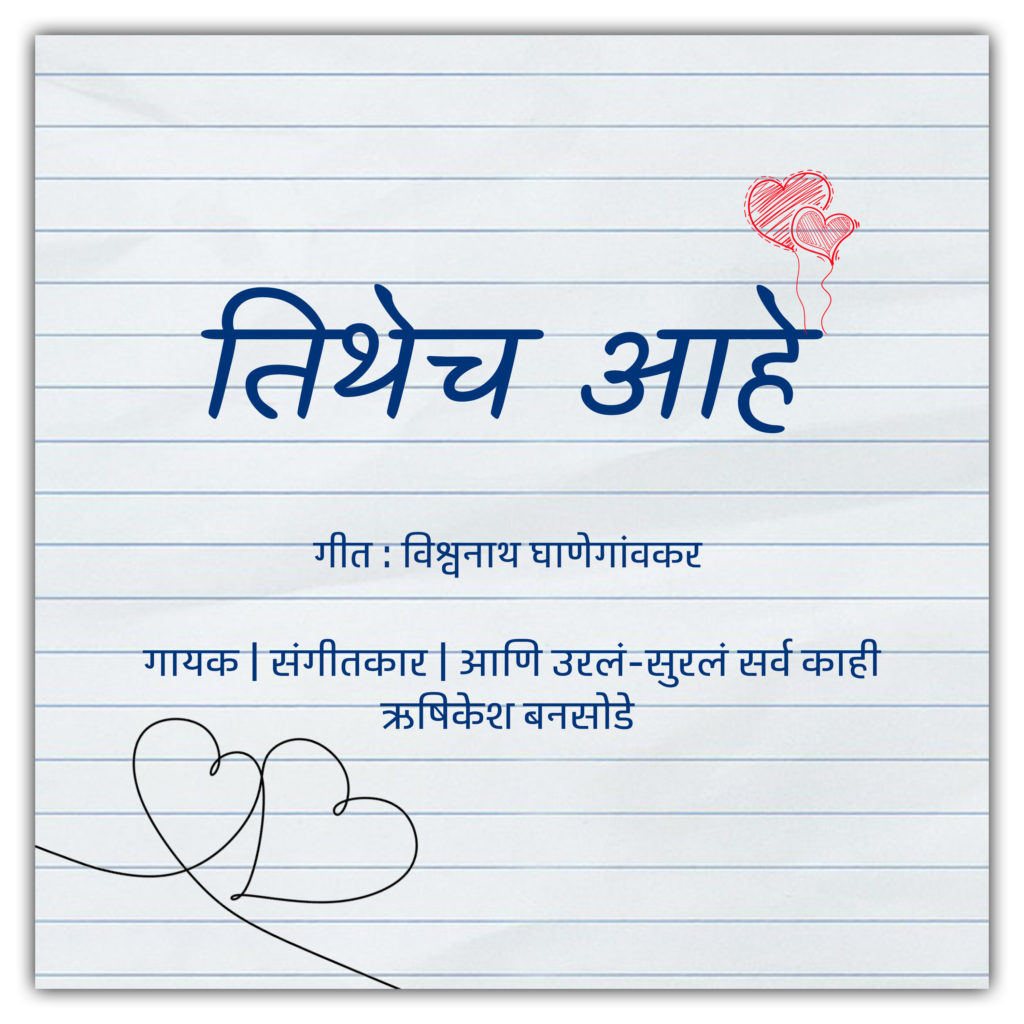 तिथेच आहे
गीत : विश्वनाथ घाणेगांवकर
गायक | संगीतकार | आणि उरलं-सुरलं सर्व काही
ऋषिकेश बनसोडे